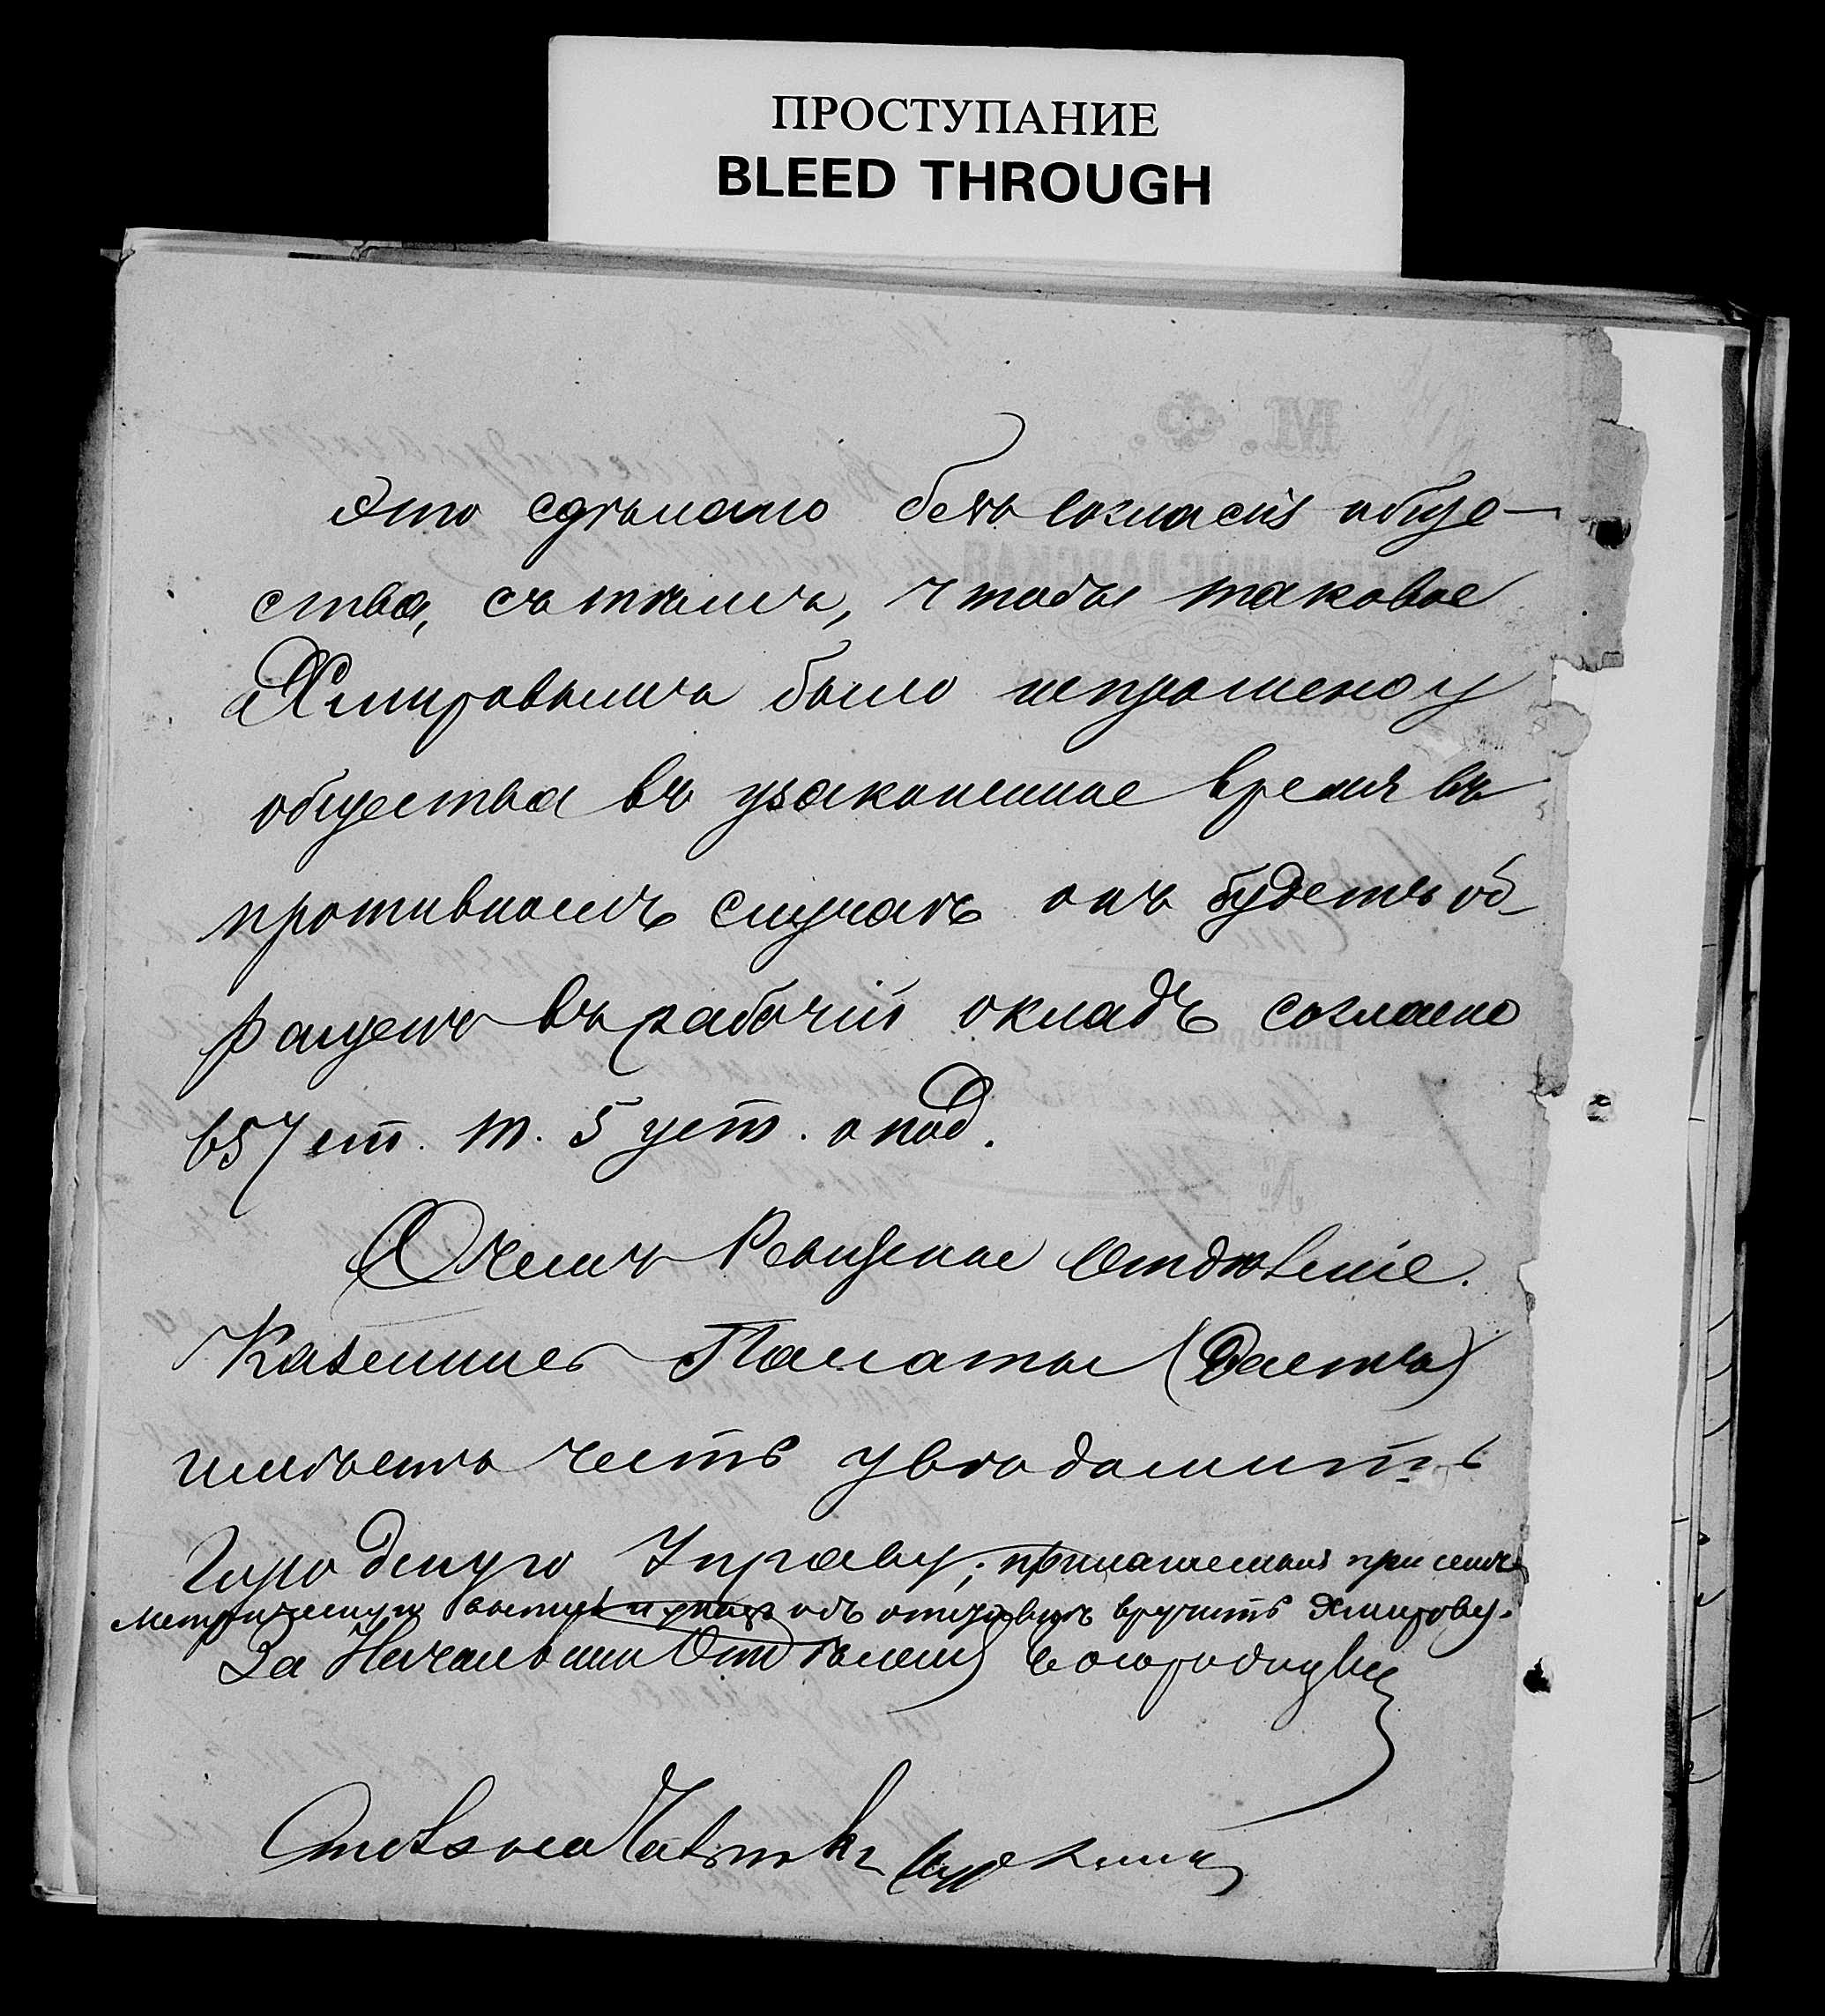 ПРОСТУПАНИЕ
BLEED THROUGH
это сдѣлано безъ согласія обще-
ства, съ тѣмъ, чтобы таковое
Хмировымъ было испрошено у
общества въ узаконенное время въ
противномъ случаѣ онъ будетъ об-
ращенъ въ рабочій окладъ согласно
657 ст. т. 5 уст. о под.
О чемъ Ревизское Отдѣленіе
Казенной Палаты
имѣетъ честь увѣдомить
Городскую Управу; прилагаемыя при семъ
метрическую выпись вручить Хмирову.
За Начальника Отдѣленія